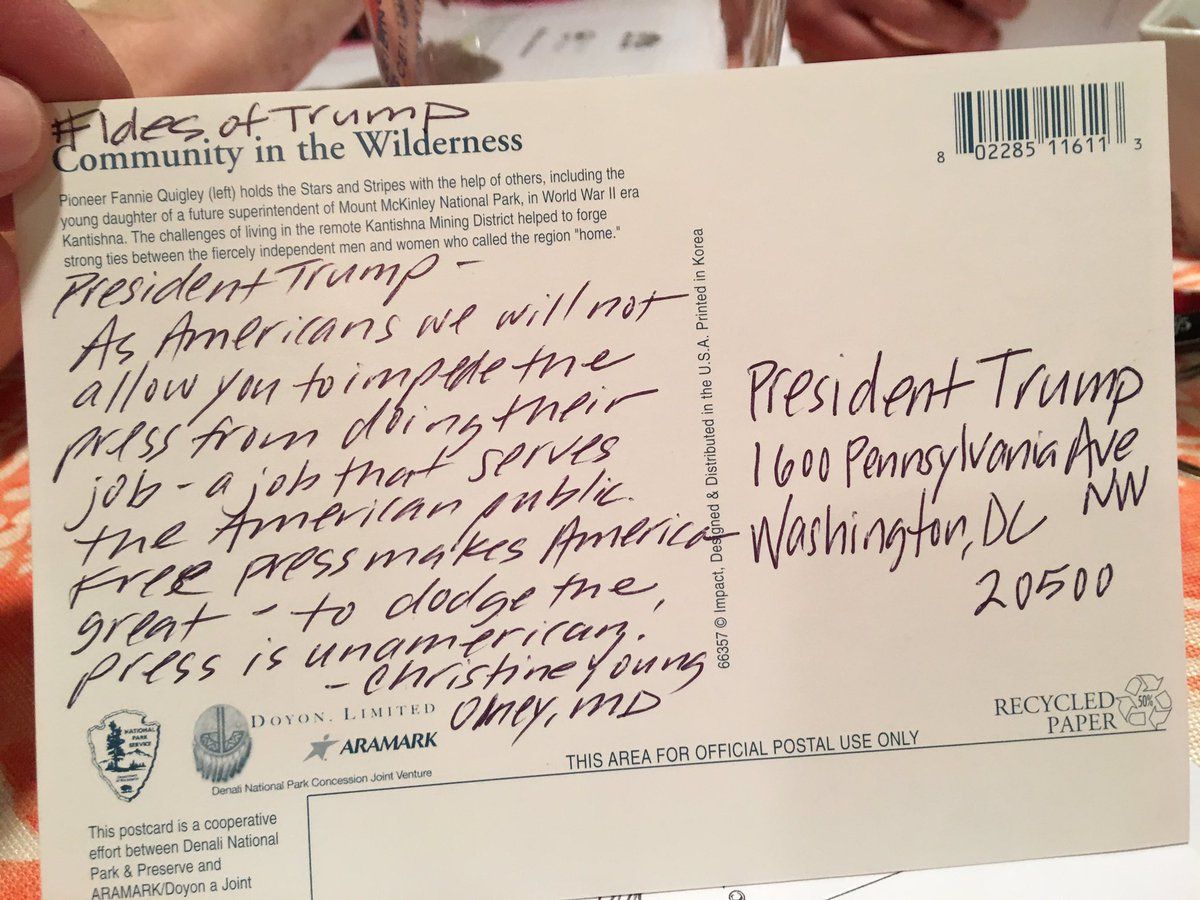 #Ides of Trump
Community in the Wilderness
Pioneer Fannie Quigley (left) holds the Stars and Stripes with the help of others, including the
young daughter of a future superintendent of Mount McKinley National Park, in World War II era
Kantishna. The challenges of living in the remote Kantishna Mining District helped to forge
strong ties between the fiercely independent men and women who called the region "home."
President Trump -
As Americans we will not
allow you to impede the
press from doing their
job - a job that serves
the American public.
Free press makes America
great - to dodge the
press is unamerican.
- Christine Young
Olney, MD
8 02285 11611 3
66357 © Impact, Designed & Distributed in the U.S.A. Printed in Korea
President Trump
1600 Pennsylvania Ave
NW
Washington, DC
20500
NATIONAL
PARK
SERVICE
DOYON, LIMITED
ARAMARK
Denali National Park Concession Joint Venture
RECYCLED
PAPER
50%
THIS AREA FOR OFFICIAL POSTAL USE ONLY
This postcard is a cooperative
effort between Denali National
Park & Preserve and
ARAMARK/Doyon a Joint